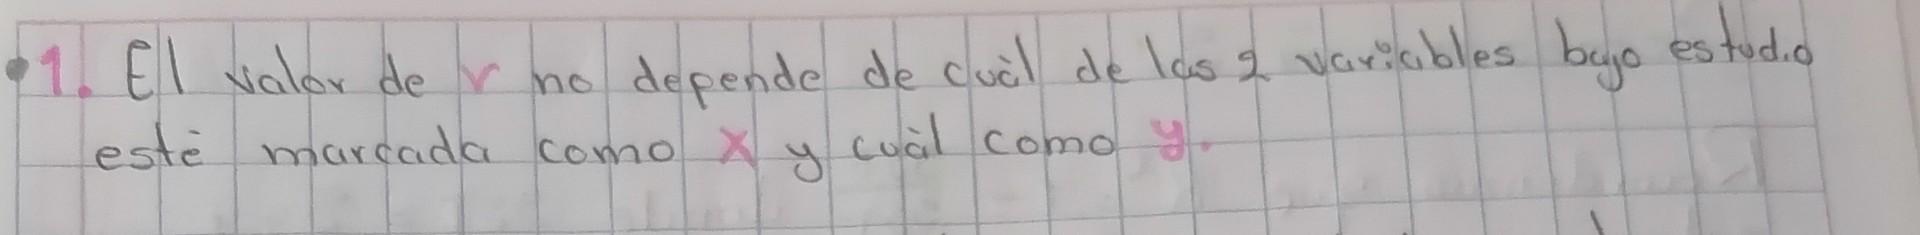 1. El valor de r no depende de cuàl de las 2 variables bajo estudio
estè marcada como x y cuàl como y.